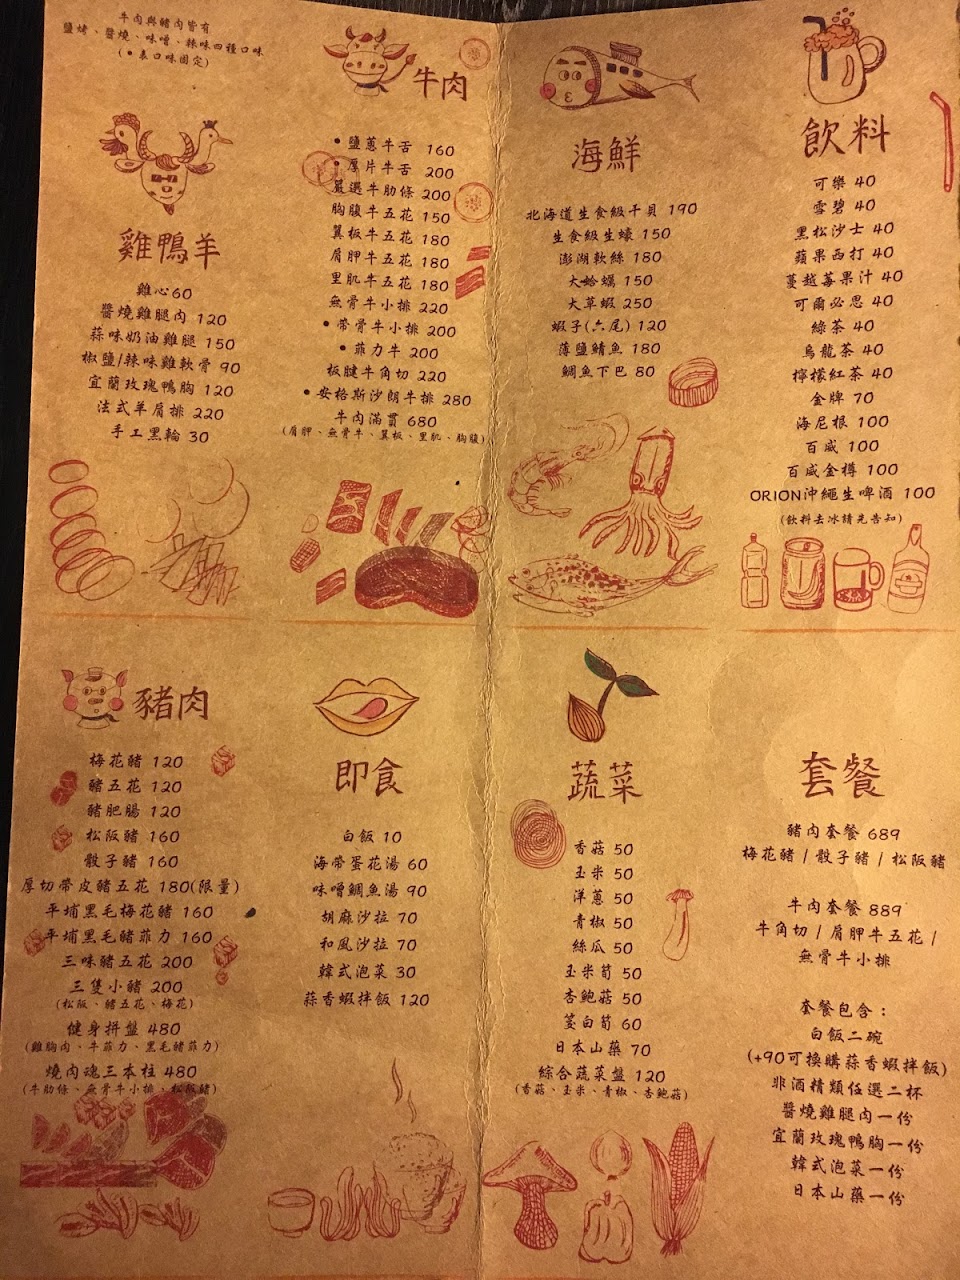 牛肉與豬肉皆有
鹽烤、醬燒、味噌、辣味四種口味
(•表口味固定)
雞鴨羊
雞心60
醬燒雞腿肉 120
蒜味奶油雞腿 150
椒鹽/辣味雞軟骨 90
宜蘭玫瑰鴨胸 120
法式羊肩排 220
手工黑輪 30
牛肉
• 鹽蔥牛舌 160
• 厚片牛舌 200
嚴選牛肋條 200
胸腹牛五花 150
翼板牛五花 180
肩胛牛五花 180
里肌牛五花 180
無骨牛小排 220
• 帶骨牛小排 200
• 菲力牛 200
板腱牛角切 220
• 安格斯沙朗牛排 280
牛肉滿貫 680
(肩胛、無骨牛、翼板、里肌、胸腹)
海鮮
北海道生食級干貝 190
生食級生蠔 150
澎湖軟絲 180
大蛤蠣 150
大草蝦 250
蝦子(六尾) 120
薄鹽鯖魚 180
鯛魚下巴 80
飲料
可樂 40
雪碧 40
黑松沙士 40
蘋果西打 40
蔓越莓果汁 40
可爾必思 40
綠茶 40
烏龍茶 40
檸檬紅茶 40
金牌 70
海尼根 100
百威 100
百威金樽 100
ORION沖繩生啤酒 100
(飲料去冰請先告知)
豬肉
梅花豬 120
豬五花 120
豬肥腸 120
松阪豬 160
骰子豬 160
厚切帶皮豬五花 180(限量)
平埔黑毛梅花豬 160
平埔黑毛豬菲力 160
三味豬五花 200
三隻小豬 200
(松阪、豬五花、梅花)
健身拼盤 480
(雞胸肉、牛菲力、黑毛豬菲力)
燒肉魂三本柱 480
(牛肋條、無骨牛小排、松阪豬)
即食
白飯 10
海帶蛋花湯 60
味噌鯛魚湯 90
胡麻沙拉 70
和風沙拉 70
韓式泡菜 30
蒜香蝦拌飯 120
蔬菜
香菇 50
玉米 50
洋蔥 50
青椒 50
絲瓜 50
玉米筍 50
杏鮑菇 50
茭白筍 60
日本山藥 70
綜合蔬菜盤 120
(香菇、玉米、青椒、杏鮑菇)
套餐
豬肉套餐 689
梅花豬 / 骰子豬 / 松阪豬
牛肉套餐 889
牛角切 / 肩胛牛五花 /
無骨牛小排
套餐包含：
白飯二碗
(+90可換購蒜香蝦拌飯)
非酒精類任選二杯
醬燒雞腿肉一份
宜蘭玫瑰鴨胸一份
韓式泡菜一份
日本山藥一份